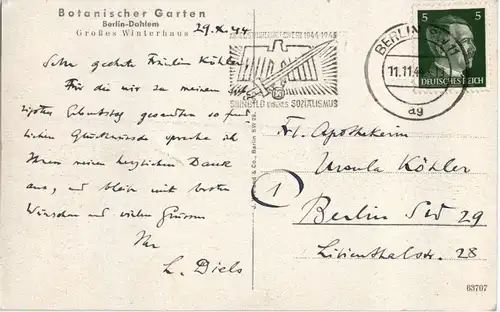 Botanischer Garten
Berlin-Dahlem
Großes Winterhaus
29.X.44
Sehr geehrte Fräulein Köhler,
Für die mir zu meinem 
zigsten Geburtstag gesandten so freund-
lichen Glückwünsche spreche ich
Ihnen meinen herzlichen Dank
aus, und bleibe mit besten
Wünschen und vielen Grüssen
Ihr
L. Diels
1944-1945
SINNBILD SOZIALISMUS
BERLIN SW 11
11.11.4
ag
5 5
DEUTSCHES REICH
Frl. Apothekerin
Ursula Köhler
1
Berlin SW 29
Lilienthalstr. 28
& Co., Berlin SW 29
63707